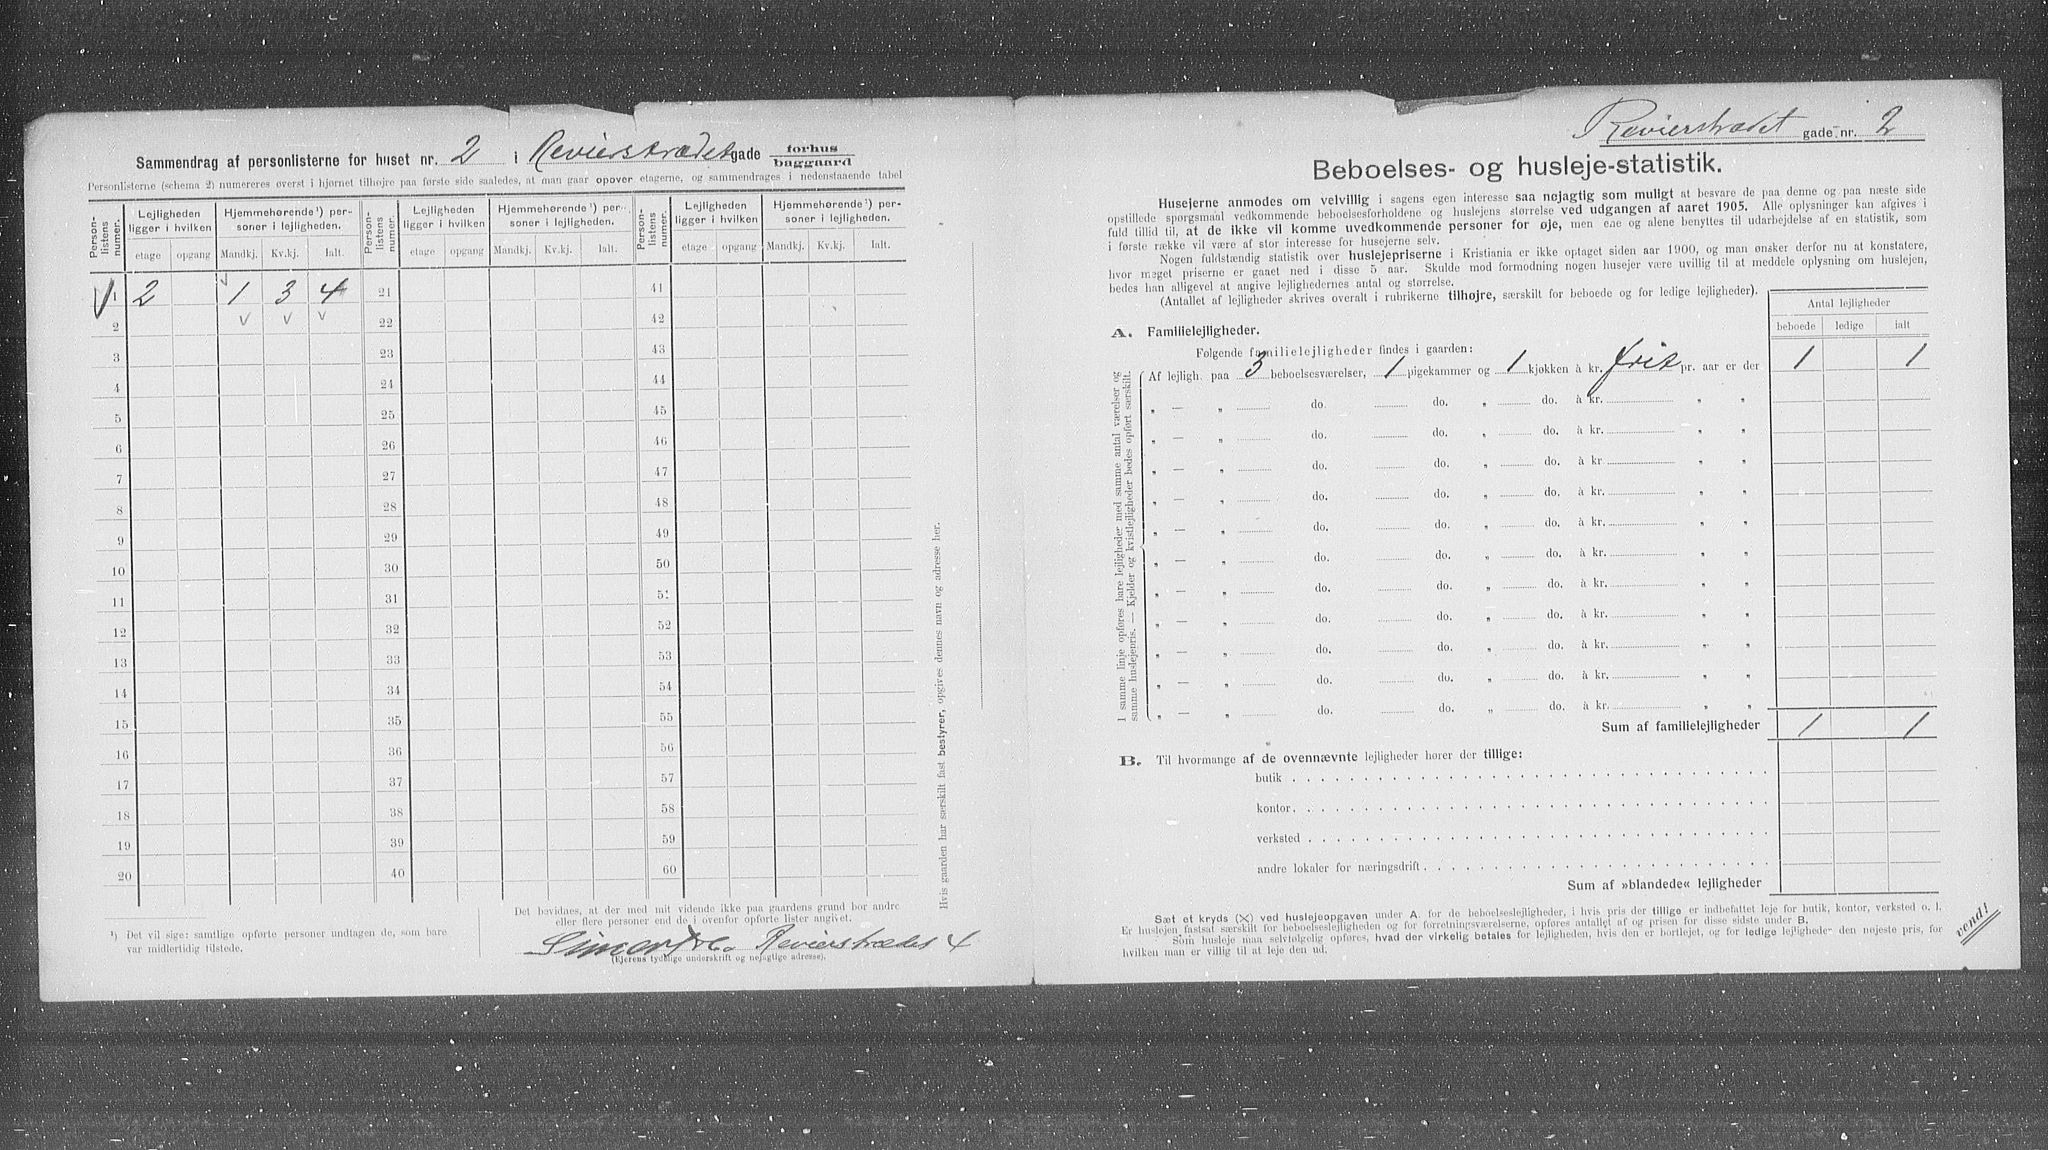 Sammendrag af personlisterne for huset nr. 2 i Revierstrædet gade forhus baggaard
Personlisterne (schema 2) numereres øverst i hjørnet tilhøjre paa første side saaledes, at man gaar opover etagerne, og sammendrages i nedenstaaende tabel
Person-listens numer. Lejligheden ligger i hvilken Hjemmehørende ¹) personer i lejligheden. Person-listens numer. Lejligheden ligger i hvilken Hjemmehørende ¹) personer i lejligheden. Person-listens numer. Lejligheden ligger i hvilken Hjemmehørende ¹) personer i lejligheden.
etage opgang Mandkj. Kv.kj. Ialt. etage opgang Mandkj. Kv.kj. Ialt. etage opgang Mandkj. Kv.kj. Ialt.
1 2 1 3 4 21 41
2 22 42
3 23 43
4 24 44
5 25 45
6 26 46
7 27 47
8 28 48
9 29 49
10 30 50
11 31 51
12 32 52
13 33 53
14 34 54
15 35 55
16 36 56
17 37 57
18 38 58
19 39 59
20 40 60
Hvis gaarden har særskilt fast bestyrer, opgives dennes navn og adresse her.
¹) Det vil sige: samtlige opførte personer undtagen de, som bare
var midlertidig tilstede.
Det bevidnes, at der med mit vidende ikke paa gaardens grund bor andre
eller flere personer end de i ovenfor opførte lister angivet.
Revierstrædet 4
(Ejerens tydelige underskrift og nøjagtige adresse).
Revierstrædet gade nr. 2
Beboelses- og husleje-statistik.
Husejerne anmodes om velvillig i sagens egen interesse saa nøjagtig som muligt at besvare de paa denne og paa næste side
opstillede spørgsmaal vedkommende beboelsesforholdene og huslejens størrelse ved udgangen af aaret 1905. Alle oplysninger kan afgives i
fuld tillid til, at de ikke vil komme uvedkommende personer for øje, men ene og alene benyttes til udarbejdelse af en statistik, som
i første række vil være af stor interesse for husejerne selv.
Nogen fuldstændig statistik over huslejepriserne i Kristiania er ikke optaget siden aar 1900, og man ønsker derfor nu at konstatere,
hvor meget priserne er gaaet ned i disse 5 aar. Skulde mod formodning nogen husejer være uvillig til at meddele oplysning om huslejen,
bedes han alligevel at angive lejlighedernes antal og størrelse.
(Antallet af lejligheder skrives overalt i rubrikerne tilhøjre, særskilt for beboede og for ledige lejligheder).
Antal lejligheder
beboede ledige ialt
A. Familielejligheder.
Følgende familielejligheder findes i gaarden:
I samme linje opføres bare lejligheder med samme antal værelser og
samme huslejepris. — Kjelder og kvistlejligheder bedes opført særskilt.
Af lejligh. paa 3 beboelsesværelser, 1 pigekammer og 1 kjøkken à kr. frit pr. aar er der 1 1
„ — „ do. do. „ do. à kr. „ „
„ — „ do. do. „ do. à kr. „ „
„ — „ do. do. „ do. à kr „ „
„ — „ do. do. „ do. à kr. „ „
„ — „ do. do. „ do. à kr. „ „
„ — „ do. do. „ do. à kr. „ „
„ — „ do. do. „ do. à kr. „ „
„ — „ do. do. „ do. à kr. „ „
„ — „ do. do. „ do. à kr. „ „
„ — „ do. do. „ do. à kr. „ „
„ — „ do. do. „ do. à kr. „ „
Sum af familielejligheder 1 1
B. Til hvormange af de ovennævnte lejligheder hører der tillige:
butik
kontor
verksted
andre lokaler for næringsdrift
Sum af »blandede« lejligheder
Sæt et kryds (X) ved huslejeopgaven under A. for de beboelseslejligheder, i hvis pris der tillige er indbefattet leje for butik, kontor, verksted o. l.
Er huslejen fastsat særskilt for beboelseslejligheden og for forretningsværelserne, opføres antallet af og prisen for disse sidste under B.
Som husleje maa selvfølgelig opføres, hvad der virkelig betales for lejligheden, hvis den er bortlejet, og for ledige lejligheder den nøjeste pris, for
hvilken man er villig til at leje den ud.
vend!